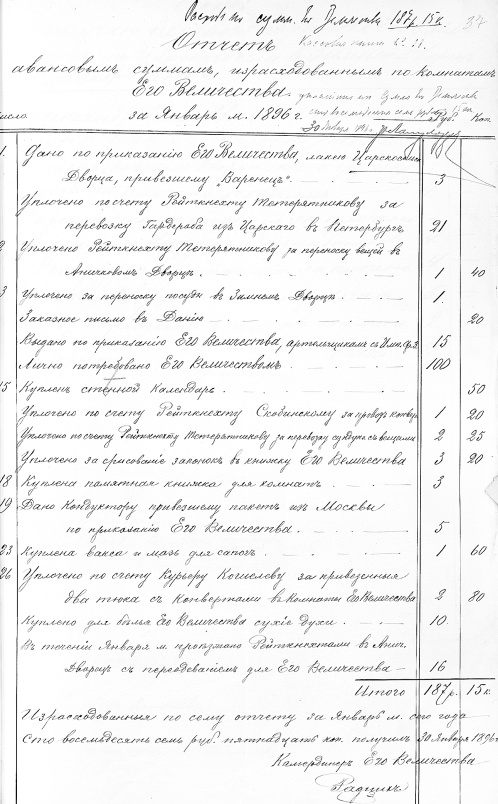 187р. 15к.
37
Отчетъ
авансовымъ суммамъ, израсходованнымъ по комнатамъ
Его Величества
за Январь м. 1896 г.
число Руб. Коп.
1. Дано по приказанію Его Величества, лакею Царскосел.
Дворца, привезшему „Варенецъ“. 3
Уплочено по счету Рейткнехту Тетерятникову за
перевозку Гардероба изъ Царскаго въ Петербургъ 21
2 Уплочено Рейткнехту Тетерятникову за переноску вещей въ
Аничковомъ Дворцѣ. 1 40
3 Уплочено за переноску посуды въ Зимнемъ Дворцѣ. 1.
Заказное письмо въ Данію 20
Выдано по приказанію Его Величества, артельщикамъ съ 15
Лично потребовано Его Величествомъ. 100
15 Купленъ стѣнной Календарь. 50
Уплочено по счету Рейткнехту Скобинскому за 1 20
Уплочено по счету Рейткнехту Тетерятникову за перевозку сундука съ вещами 2 25
Уплочено за срисованіе запонокъ въ книжку Его Величества 3 20
18 Куплена памятная книжка для комнатъ. 3
19 Дано Кондуктору привезшему пакетъ изъ Москвы
по приказанію Его Величества. 5
23 Куплена вакса и мазь для сапогъ. 1 60
26 Уплочено по счету Курьеру Кошелову за привезенныя
два тюка съ конвертами въ комнаты Его Величества 2 80
Куплено для бѣлья Его Величества сухіе духи. 10.
Въ теченіи Января м. Рейткнехтами въ Анич.
Дворецъ съ переодеваніемъ для Его Величества 16
Итого 187р. 15к.
Израсходованныя по сему отчету за Январь м. сего года
сто восемьдесятъ семь руб. пятнадцать коп. получилъ 30 Января 1896г.
Камердинеръ Его Величества
Радцигъ